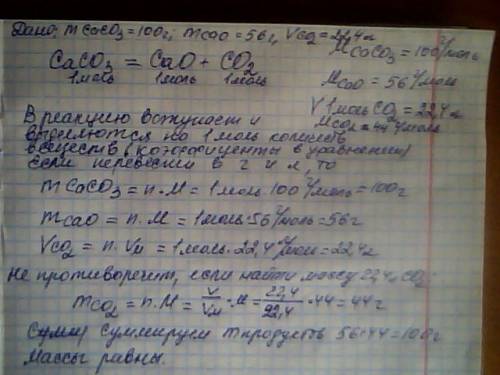 Дано: m CaCO₃ = 100г; m CaO = 56г, V CO₂ = 22,4л
M CaCO₃ = 100 г/моль
CaCO₃ = CaO + CO₂
1моль 1моль 1моль
M CaO = 56 г/моль
V 1моль CO₂ = 22,4л
M CO₂ = 44 г/моль
В реакцию вступает и
выделяются по 1 моль количеств
веществ (коэффициенты в уравнении)
Если перевести в г и л, то
m CaCO₃ = n · M = 1моль · 100 г/моль = 100г
m CaO = n · M = 1моль · 56 г/моль = 56г
V CO₂ = n · Vм = 1моль · 22,4 л/моль = 22,4л
Не противоречит, если найти массу 22,4л CO₂:
m CO₂ = n · M = V/Vм · M = 22,4/22,4 · 44 = 44г
Сумми суммируем m продуктов 56+44=100г
Массы равны.